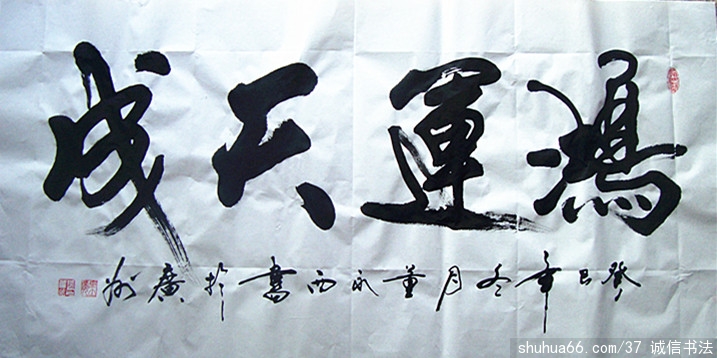 鴻運天成
癸巳年冬月董永西書於廣州
shuhua66.com/37 诚信书法